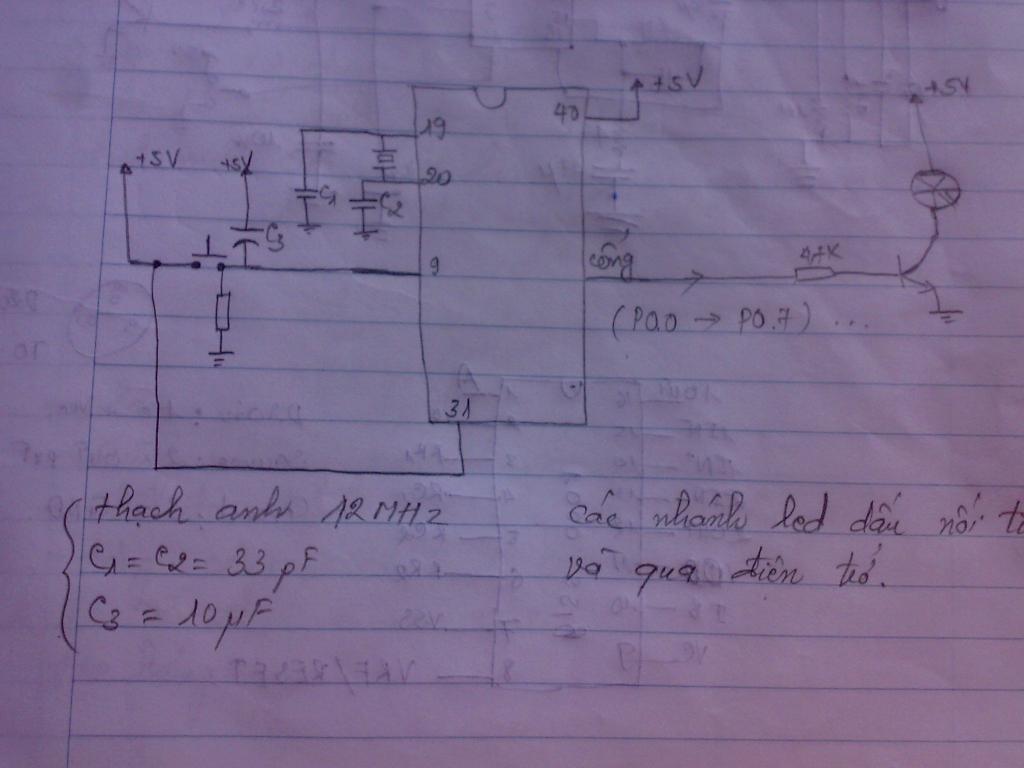 +5V
40
+5V
19
+5V
+5V
20
C1
C2
C3
9
cổng
4,7K
(P0.0 → P0.7) ...
31
thạch anh 12 MHz
C1 = C2 = 33 pF
C3 = 10 µF
các nhánh led đấu nối
và qua điện trở.
8 VRF/RESET
7 VSS